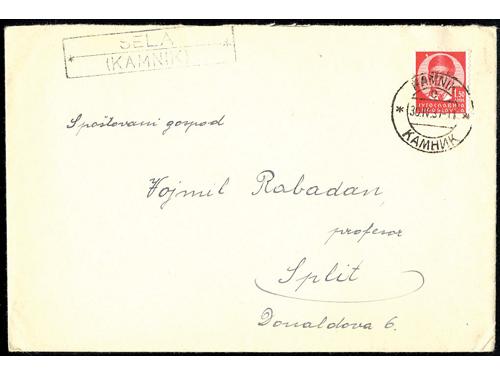 SELA
(KAMNIK)
1.50
ЈУГОСЛАВИЈА
JUGOSLAVIJA
KAMNIK
30.IV.37-11
КАМНИК
Spoštovani gospod
Vojmil Rabadan,
profesor
Split
Donaldova 6.